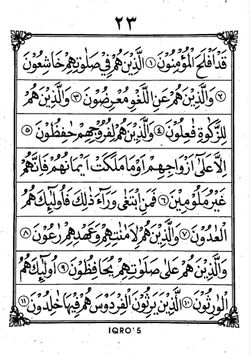 ٢٣
قَدْ أَفْلَحَ الْمُؤْمِنُوْنَ ۝١ الَّذِيْنَ هُمْ فِيْ صَلَاتِهِمْ خَاشِعُوْنَ
۝٢ وَالَّذِيْنَ هُمْ عَنِ اللَّغْوِ مُعْرِضُوْنَ ۝٣ وَالَّذِيْنَ هُمْ
لِلزَّكٰوةِ فٰعِلُوْنَ ۝٤ وَالَّذِيْنَ هُمْ لِفُرُوْجِهِمْ حٰفِظُوْنَ ۝٥
اِلَّا عَلٰٓى اَزْوَاجِهِمْ اَوْ مَا مَلَكَتْ اَيْمَانُهُمْ فَاِنَّهُمْ
غَيْرُ مَلُوْمِيْنَ ۝٦ فَمَنِ ابْتَغٰى وَرَآءَ ذٰلِكَ فَاُولٰٓئِكَ هُمُ
الْعٰدُوْنَ ۝٧ وَالَّذِيْنَ هُمْ لِاَمٰنٰتِهِمْ وَعَهْدِهِمْ رٰعُوْنَ ۝٨
وَالَّذِيْنَ هُمْ عَلٰى صَلَوٰتِهِمْ يُحَافِظُوْنَ ۝٩ اُولٰٓئِكَ هُمُ
الْوٰرِثُوْنَ ۝١٠ الَّذِيْنَ يَرِثُوْنَ الْفِرْدَوْسَ هُمْ فِيْهَا خٰلِدُوْنَ ۝١١
IQRO'5